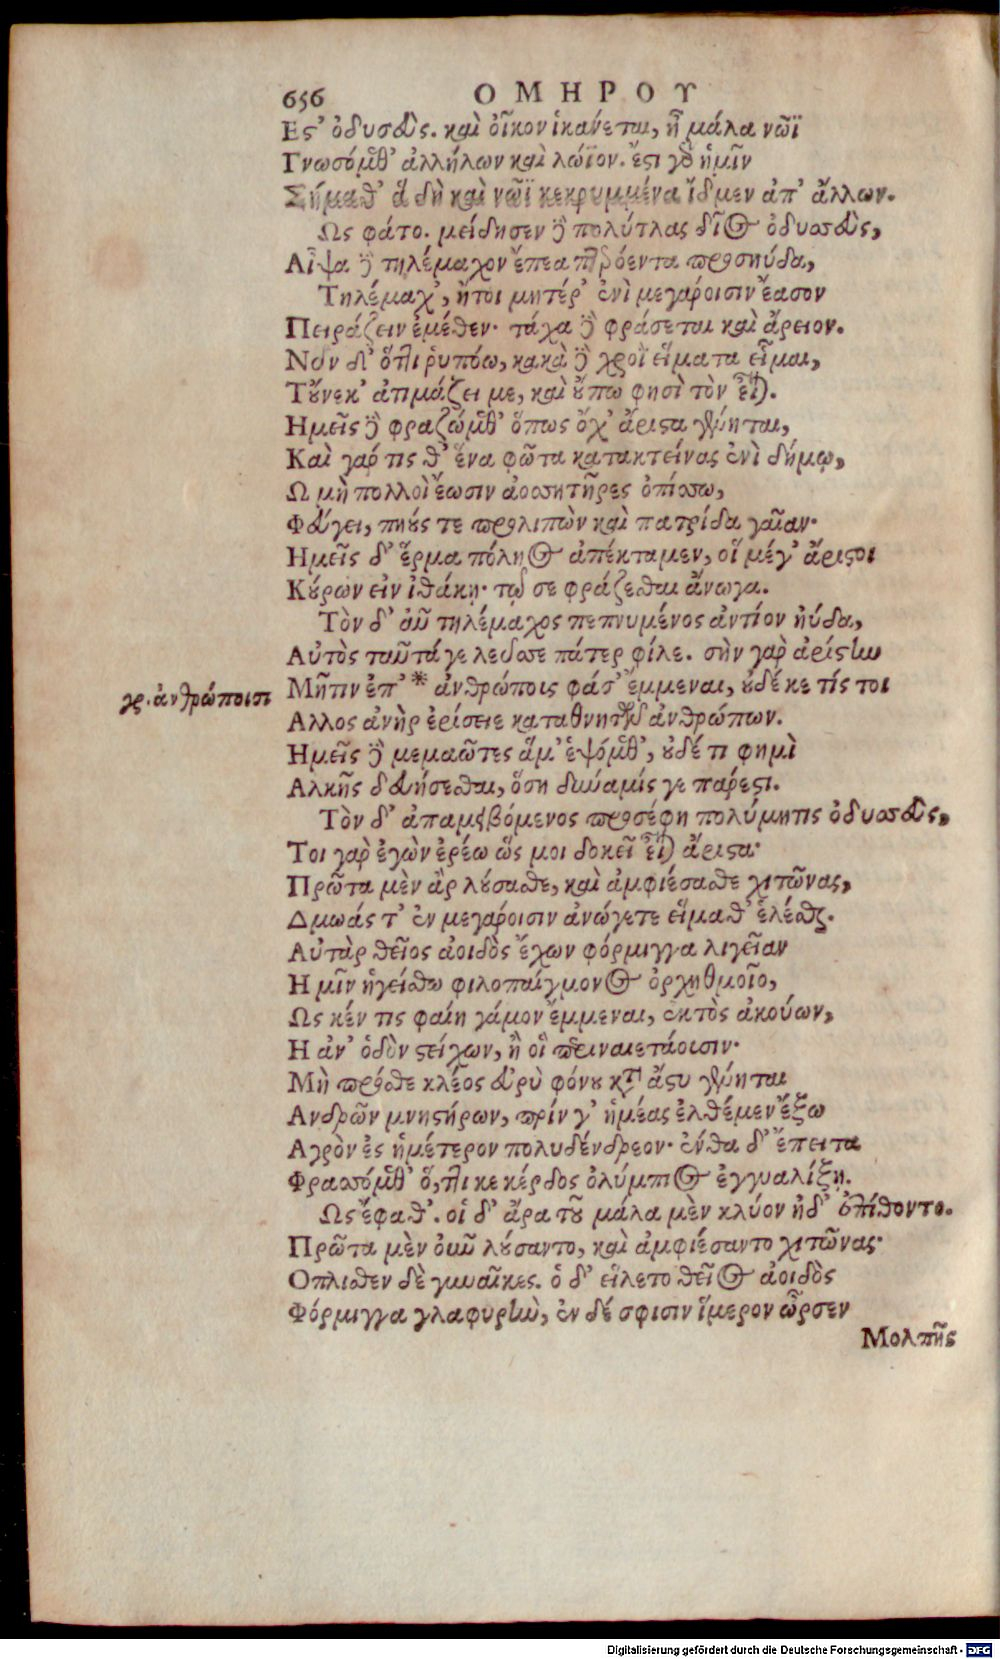 656 ΟΜΗΡΟΥ
Εστ' ὀδυσεὺς. καὶ οἶκον ἱκάνεται, ἦ μάλα νῶϊ
Γνωσόμεθ' ἀλλήλων καὶ λώϊον. ἔστι γὰρ ἡμῖν
Σήμαθ' ἃ δὴ καὶ νῶϊ κεκρυμμένα ἴδμεν ἀπ' ἄλλων.
Ως φάτο. μείδησεν δὲ πολύτλας δῖος ὀδυσσεὺς,
Αἶψα δὲ τηλέμαχον ἔπεα πτερόεντα προσηύδα,
Τηλέμαχ', ἤτοι μητέρ' ἐνὶ μεγάροισιν ἔασον
Πειράζειν ἐμέθεν· τάχα δὲ φράσεται καὶ ἄρειον.
Νῦν δ' ὅττι ῥυπόω, κακὰ δὲ χροῒ εἵματα εἷμαι,
Τούνεκ' ἀτιμάζει με, καὶ οὔπω φησὶ τὸν εἶναι.
Ημεῖς δὲ φραζώμεθ' ὅπως ὄχ' ἄριστα γένηται,
Καὶ γάρ τις θ' ἕνα φῶτα κατακτείνας ἐνὶ δήμῳ,
Ω μὴ πολλοὶ ἔωσιν ἀοσσητῆρες ὀπίσσω,
Φεύγει, πηούς τε προλιπὼν καὶ πατρίδα γαῖαν·
Ημεῖς δ' ἕρμα πόληος ἀπέκταμεν, οἳ μέγ' ἄριστοι
Κούρων εἰν ἰθάκῃ· τῷ σε φράζεσθαι ἄνωγα.
Τὸν δ' αὖ τηλέμαχος πεπνυμένος ἀντίον ηὔδα,
Αὐτὸς ταῦτά γε λεύσσε πάτερ φίλε. σὴν γὰρ ἀρίστην
γρ. ἀνθρώποισι
Μῆτιν ἐπ' * ἀνθρώποις φάσ' ἔμμεναι, οὐδέ κε τίς τοι
Αλλος ἀνὴρ ἐρίσειε καταθνητῶν ἀνθρώπων.
Ημεῖς δὲ μεμαῶτες ἅμ' ἑψόμεθ', οὐδέ τι φημὶ
Αλκῆς δευήσεσθαι, ὅση δύναμίς γε πάρεστι.
Τὸν δ' ἀπαμειβόμενος προσέφη πολύμητις ὀδυσσεὺς,
Τοι γὰρ ἐγὼν ἐρέω ὥς μοι δοκεῖ εἶναι ἄριστα·
Πρῶτα μὲν ἂρ λούσασθε, καὶ ἀμφιέσασθε χιτῶνας,
Δμωάς τ' ἐν μεγάροισιν ἀνώγετε εἵμαθ' ἑλέσθαι.
Αὐτὰρ θεῖος ἀοιδὸς ἔχων φόρμιγγα λιγεῖαν
Η μῖν ἡγείσθω φιλοπαίγμονος ὀρχηθμοῖο,
Ως κέν τις φαίη γάμον ἔμμεναι, ἐκτὸς ἀκούων,
Η ἀν' ὁδὸν στείχων, ἢ οἳ περιναιετάουσιν·
Μὴ πρόσθε κλέος εὐρὺ φόνου κατὰ ἄστυ γένηται
Ανδρῶν μνηστήρων, πρίν γ' ἡμέας ἐλθέμεν ἔξω
Αγρὸν ἐς ἡμέτερον πολυδένδρεον· ἔνθα δ' ἔπειτα
Φρασσόμεθ' ὅ, ττι κε κέρδος ὀλύμπιος ἐγγυαλίξῃ.
Ως ἔφαθ'. οἱ δ' ἄρα τοῦ μάλα μὲν κλύον ἠδ' ἐπίθοντο.
Πρῶτα μὲν οὖν λούσαντο, καὶ ἀμφιέσαντο χιτῶνας·
Οπλισθεν δὲ γυναῖκες. ὁ δ' εἵλετο θεῖος ἀοιδὸς
Φόρμιγγα γλαφυρὴν, ἐν δέ σφισιν ἵμερον ὦρσεν
Μολπῆς
Digitalisierung gefördert durch die Deutsche Forschungsgemeinschaft - DFG